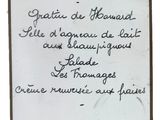 Gratin de Homard
Selle d'agneau de lait
aux champignons
Salade
Les Fromages
Crème renversée aux fraises